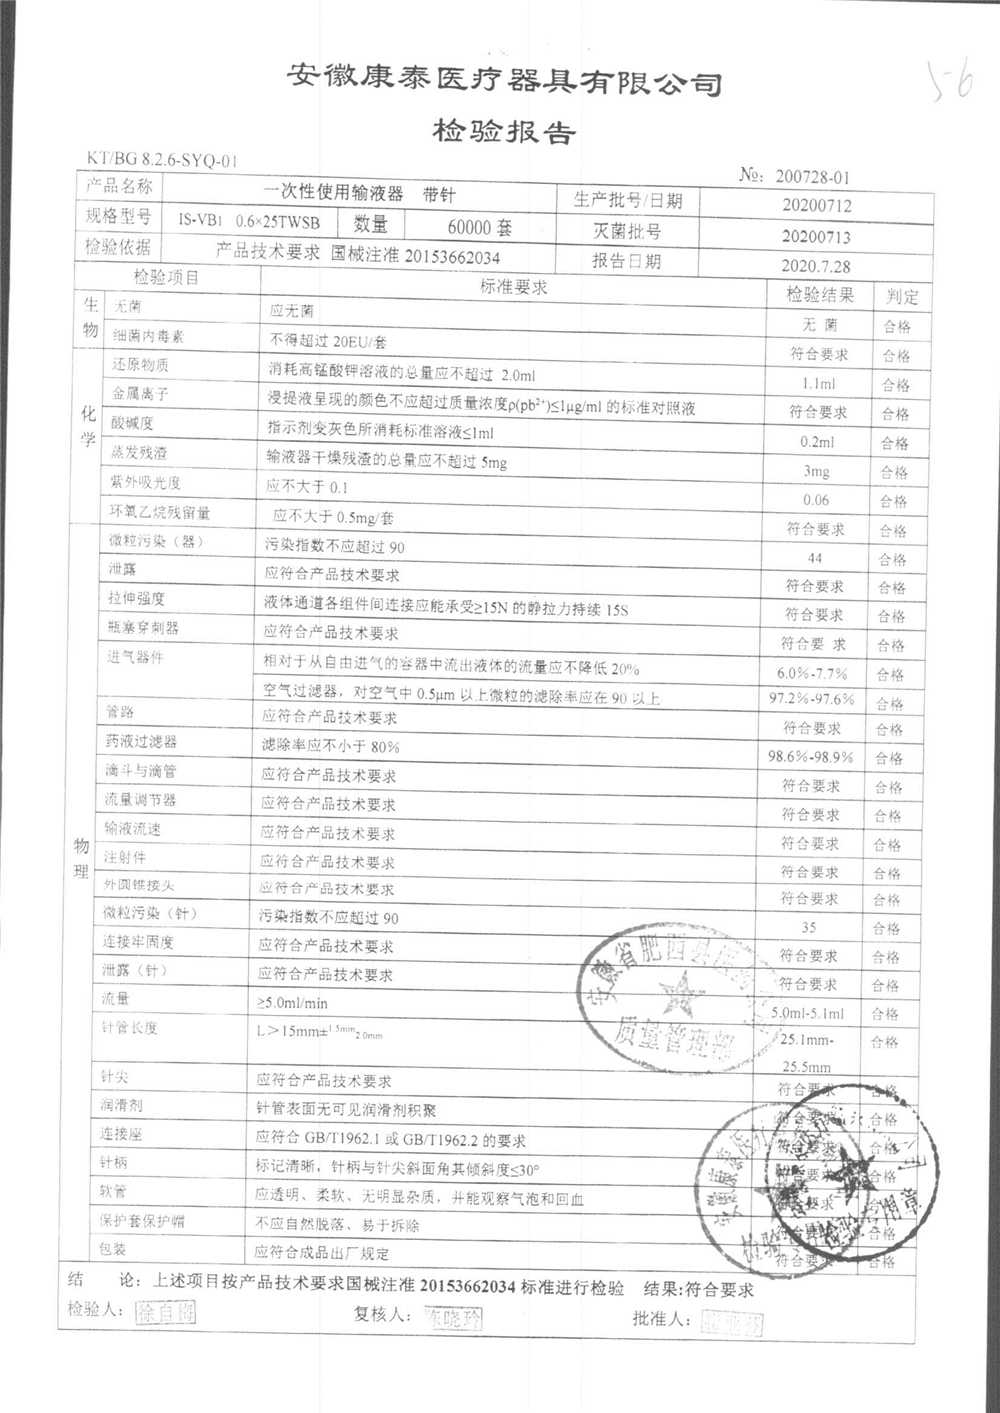 56
安徽康泰医疗器具有限公司
检验报告
KT/BG 8.2.6-SYQ-01
№: 200728-01
产品名称 一次性使用输液器 带针 生产批号/日期 20200712
规格型号 IS-VB1 0.6×25TWSB 数量 60000 套 灭菌批号 20200713
检验依据 产品技术要求 国械注准 20153662034 报告日期 2020.7.28
检验项目 标准要求 检验结果 判定
生物
无菌 应无菌 无 菌 合格
细菌内毒素 不得超过 20EU/套 符合要求 合格
化学
还原物质 消耗高锰酸钾溶液的总量应不超过 2.0ml 1.1ml 合格
金属离子 浸提液呈现的颜色不应超过质量浓度ρ(pb²⁺)≤1μg/ml 的标准对照液 符合要求 合格
酸碱度 指示剂变灰色所消耗标准溶液≤1ml 0.2ml 合格
蒸发残渣 输液器干燥残渣的总量应不超过 5mg 3mg 合格
紫外吸光度 应不大于 0.1 0.06 合格
环氧乙烷残留量 应不大于 0.5mg/套 符合要求 合格
物理
微粒污染（器） 污染指数不应超过 90 44 合格
泄露 应符合产品技术要求 符合要求 合格
拉伸强度 液体通道各组件间连接应能承受≥15N 的静拉力持续 15S 符合要求 合格
瓶塞穿刺器 应符合产品技术要求 符合要 求 合格
进气器件 相对于从自由进气的容器中流出液体的流量应不降低 20% 6.0%-7.7% 合格
空气过滤器，对空气中 0.5μm 以上微粒的滤除率应在 90 以上 97.2%-97.6% 合格
管路 应符合产品技术要求 符合要求 合格
药液过滤器 滤除率应不小于 80% 98.6%-98.9% 合格
滴斗与滴管 应符合产品技术要求 符合要求 合格
流量调节器 应符合产品技术要求 符合要求 合格
输液流速 应符合产品技术要求 符合要求 合格
注射件 应符合产品技术要求 符合要求 合格
外圆锥接头 应符合产品技术要求 符合要求 合格
微粒污染（针） 污染指数不应超过 90 35 合格
连接牢固度 应符合产品技术要求 符合要求 合格
泄露（针） 应符合产品技术要求 符合要求 合格
流量 ≥5.0ml/min 5.0ml-5.1ml 合格
针管长度 L＞15mm±1.5mm2.0mm 25.1mm-25.5mm 合格
针尖 应符合产品技术要求 符合要求 合格
润滑剂 针管表面无可见润滑剂积聚 符合要求 合格
连接座 应符合 GB/T1962.1 或 GB/T1962.2 的要求 符合要求 合格
针柄 标记清晰，针柄与针尖斜面角其倾斜度≤30° 符合要求 合格
软管 应透明、柔软、无明显杂质，并能观察气泡和回血 符合要求 合格
保护套保护帽 不应自然脱落、易于拆除 符合要求 合格
包装 应符合成品出厂规定 符合要求 合格
结 论：上述项目按产品技术要求国械注准 20153662034 标准进行检验 结果:符合要求
检验人： 复核人： 陈晓玲 批准人：
安徽省肥西县
质量管理部
安徽康泰医疗
检验专用章